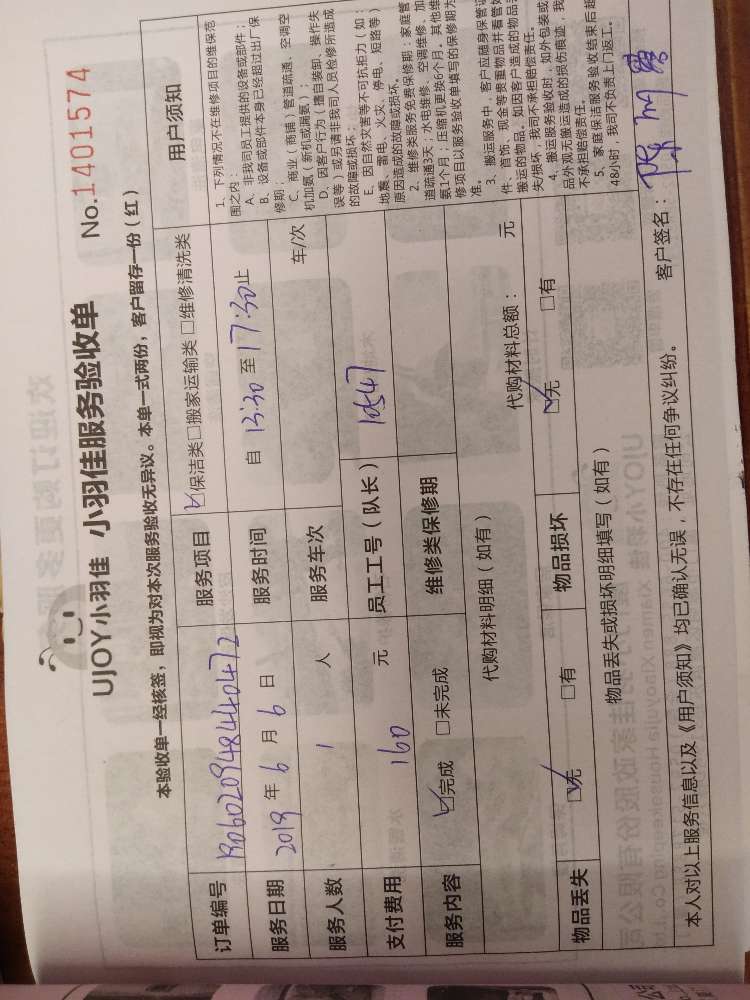 UJOY小羽佳 小羽佳服务验收单 No.1401574
本验收单一经核签，即视为对本次服务验收无异议。本单一式两份，客户留存一份（红）
订单编号 服务项目 ☑保洁类□搬家运输类 □维修清洗类 用户须知
服务日期 2019 年 6 月 6 日 服务时间 自 13:30 至 17:30止
服务人数 1 人 服务车次 车/次
支付费用 160 元 员工工号（队长） 10547
服务内容 ☑完成 □未完成 维修类保修期
代购材料明细（如有） 代购材料总额： 元
物品丢失 ☑无 □有 物品损坏 ☑无 □有
物品丢失或损坏明细填写（如有）
1、下列情况不在维修项目的维保范
围之内：
A、非我司员工提供的设备或部件；
B、设备或部件本身已经超过出厂保
修期；
C、商业（商铺）管道疏通、空调空
机加氨（新机或漏氨）；
D、因客户行为（擅自装卸、操作失
误等）或另请非我司人员检修所造成
的故障或损坏；
E、因自然灾害等不可抗拒力（如：
地震、雷电、火灾、停电、短路等）
原因造成的故障或损坏。
2、维修类服务免费保修期：家庭管
道疏通3天；水电维修、空调维修、加
氨1个月；压缩机更换6个月。其他维
修项目以服务验收单填写的保修期为
准。
3、搬运服务中，客户应随身保管证
件、首饰、现金等贵重物品并看管好
搬运的物品，如因客户造成的物品丢
失/损坏，我司不承担赔偿责任。
4、搬运服务验收时，如外包装或
品外观无搬运造成的损伤痕迹，我
不承担赔偿责任。
5、家庭保洁服务验收结束后超
48小时，我司不负责上门返工。
本人对以上服务信息以及《用户须知》均已确认无误，不存在任何争议纠纷。 客户签名：